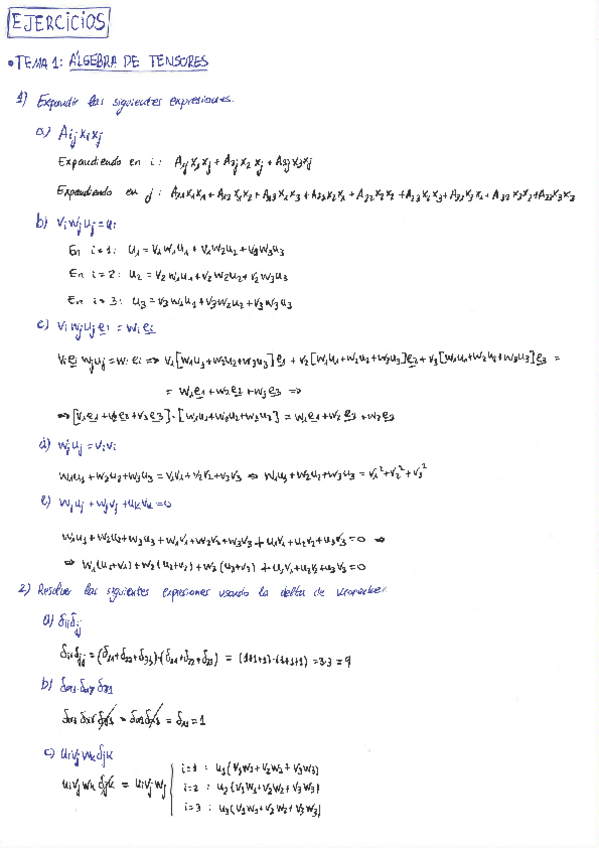 EJERCICIOS
• TEMA 1: ÁLGEBRA DE TENSORES
1) Expandir las siguientes expresiones.
a) Aij xi xj
Expandiendo en i: A1j x1 xj + A2j x2 xj + A3j x3 xj
Expandiendo en j: A11 x1 x1 + A12 x1 x2 + A13 x1 x3 + A21 x2 x1 + A22 x2 x2 + A23 x2 x3 + A31 x3 x1 + A32 x3 x2 + A33 x3 x3
b) vi wj uj = ui
En i=1: u1 = v1 w1 u1 + v1 w2 u2 + v1 w3 u3
En i=2: u2 = v2 w1 u1 + v2 w2 u2 + v2 w3 u3
En i=3: u3 = v3 w1 u1 + v3 w2 u2 + v3 w3 u3
c) vi wj uj ei = wi ei
vi ei wj uj = wi ei => v1 [w1 u1 + w2 u2 + w3 u3] e1 + v2 [w1 u1 + w2 u2 + w3 u3] e2 + v3 [w1 u1 + w2 u2 + w3 u3] e3 =
= w1 e1 + w2 e2 + w3 e3 =>
=> [v1 e1 + v2 e2 + v3 e3] · [w1 u1 + w2 u2 + w3 u3] = w1 e1 + w2 e2 + w3 e3
d) wj uj = vi vi
w1 u1 + w2 u2 + w3 u3 = v1 v1 + v2 v2 + v3 v3 => w1 u1 + w2 u2 + w3 u3 = v1² + v2² + v3²
e) wj uj + wj vj + uk vk = 0
w1 u1 + w2 u2 + w3 u3 + w1 v1 + w2 v2 + w3 v3 + u1 v1 + u2 v2 + u3 v3 = 0 =>
=> w1 (u1 + v1) + w2 (u2 + v2) + w3 (u3 + v3) + u1 v1 + u2 v2 + u3 v3 = 0
2) Resolver las siguientes expresiones usando la delta de Kronecker
a) δii δjj
δii δjj = (δ11 + δ22 + δ33) · (δ11 + δ22 + δ33) = (1+1+1) · (1+1+1) = 3·3 = 9
b)
= δ11 = 1
c) ui vj wk δjk
ui vj wk δjk = ui vj wj
i=1 : u1 (v1 w1 + v2 w2 + v3 w3)
i=2 : u2 (v1 w1 + v2 w2 + v3 w3)
i=3 : u3 (v1 w1 + v2 w2 + v3 w3)